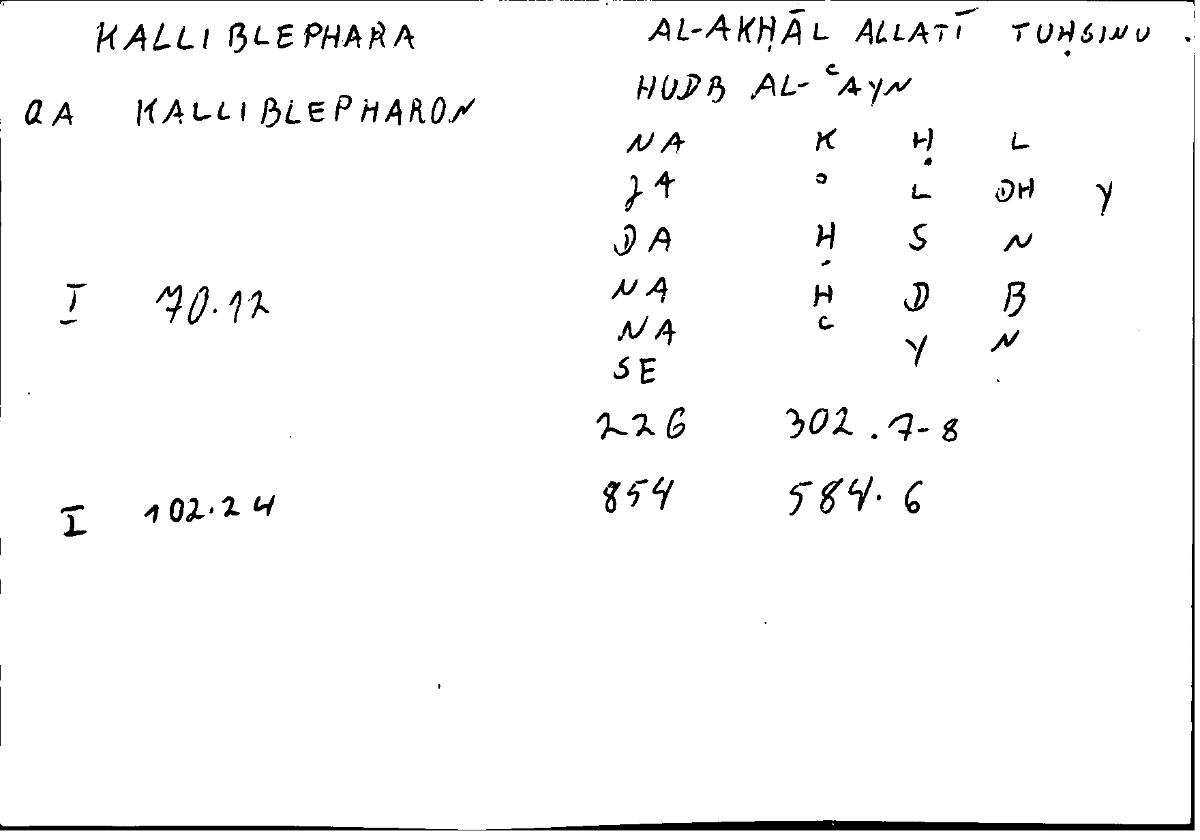 KALLIBLEPHARA AL-AKḤĀL ALLATĪ TUḤSINU
HUDB AL-ʿAYN
QA KALLIBLEPHARON
NA K Ḥ L
JA ʾ L DH Y
DA Ḥ S N
I 70.12 NA H D B
NA ʿ Y N
SE
226 302.7-8
I 102.24 854 584.6